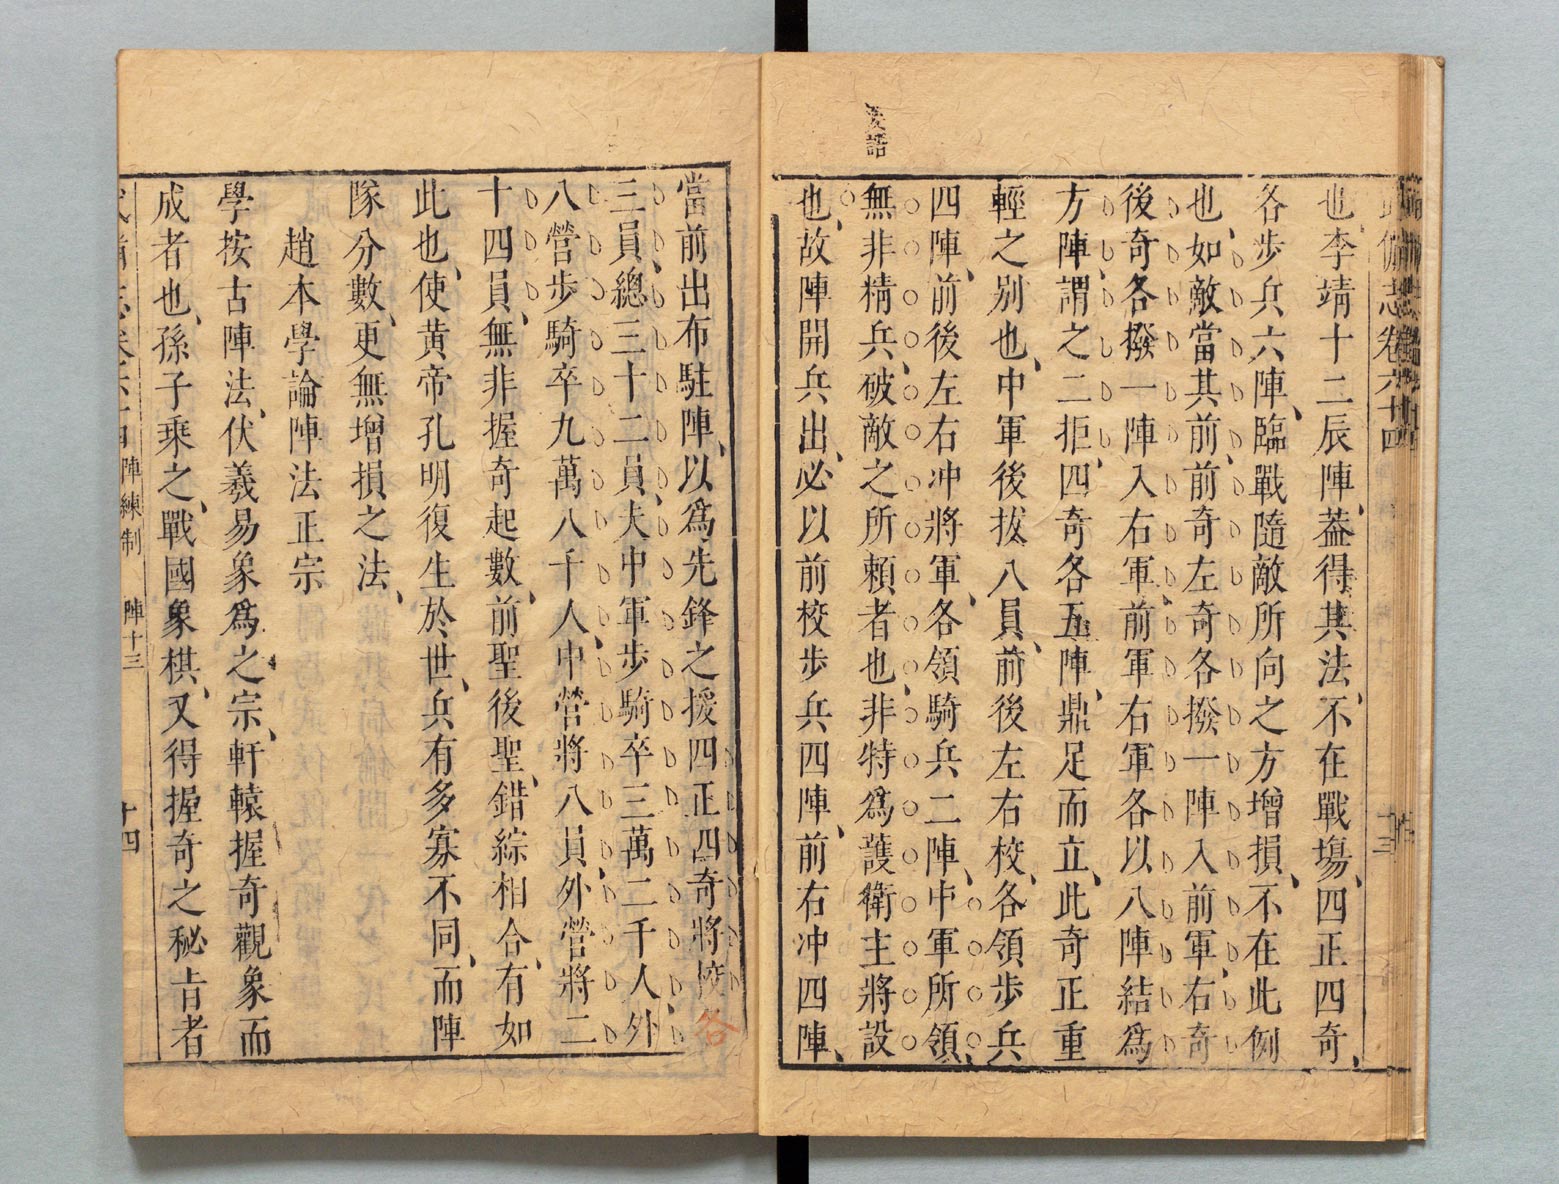 備志卷六十四
也李靖十二辰陣葢得其法不在戰塲四正四奇
各步兵六陣臨戰隨敵所向之方增損不在此例
也如敵當其前前奇左奇各撥一陣入前軍右奇
後奇各撥一陣入右軍前軍右軍各以八陣結爲
方陣謂之二拒四奇各五陣鼎足而立此奇正重
輕之別也中軍後拔八員前後左右校各領步兵
四陣前後左右冲將軍各領騎兵二陣中軍所領
無非精兵破敵之所賴者也非特爲護衛主將設
也故陣開兵出必以前校步兵四陣前右冲四陣
當前出布駐陣以爲先鋒之援四正四奇將校各
三員總三十二員夫中軍步騎卒三萬二千人外
八營步騎卒九萬八千人中營將八員外營將二
十四員無非握奇起數前聖後聖錯綜相合有如
此也使黃帝孔明復生於世兵有多寡不同而陣
隊分數更無增損之法
趙本學論陣法正宗
學按古陣法伏羲易象爲之宗軒轅握奇觀象而
成者也孫子乘之戰國象棋又得握奇之秘旨者
陣練制 陣十三 十四